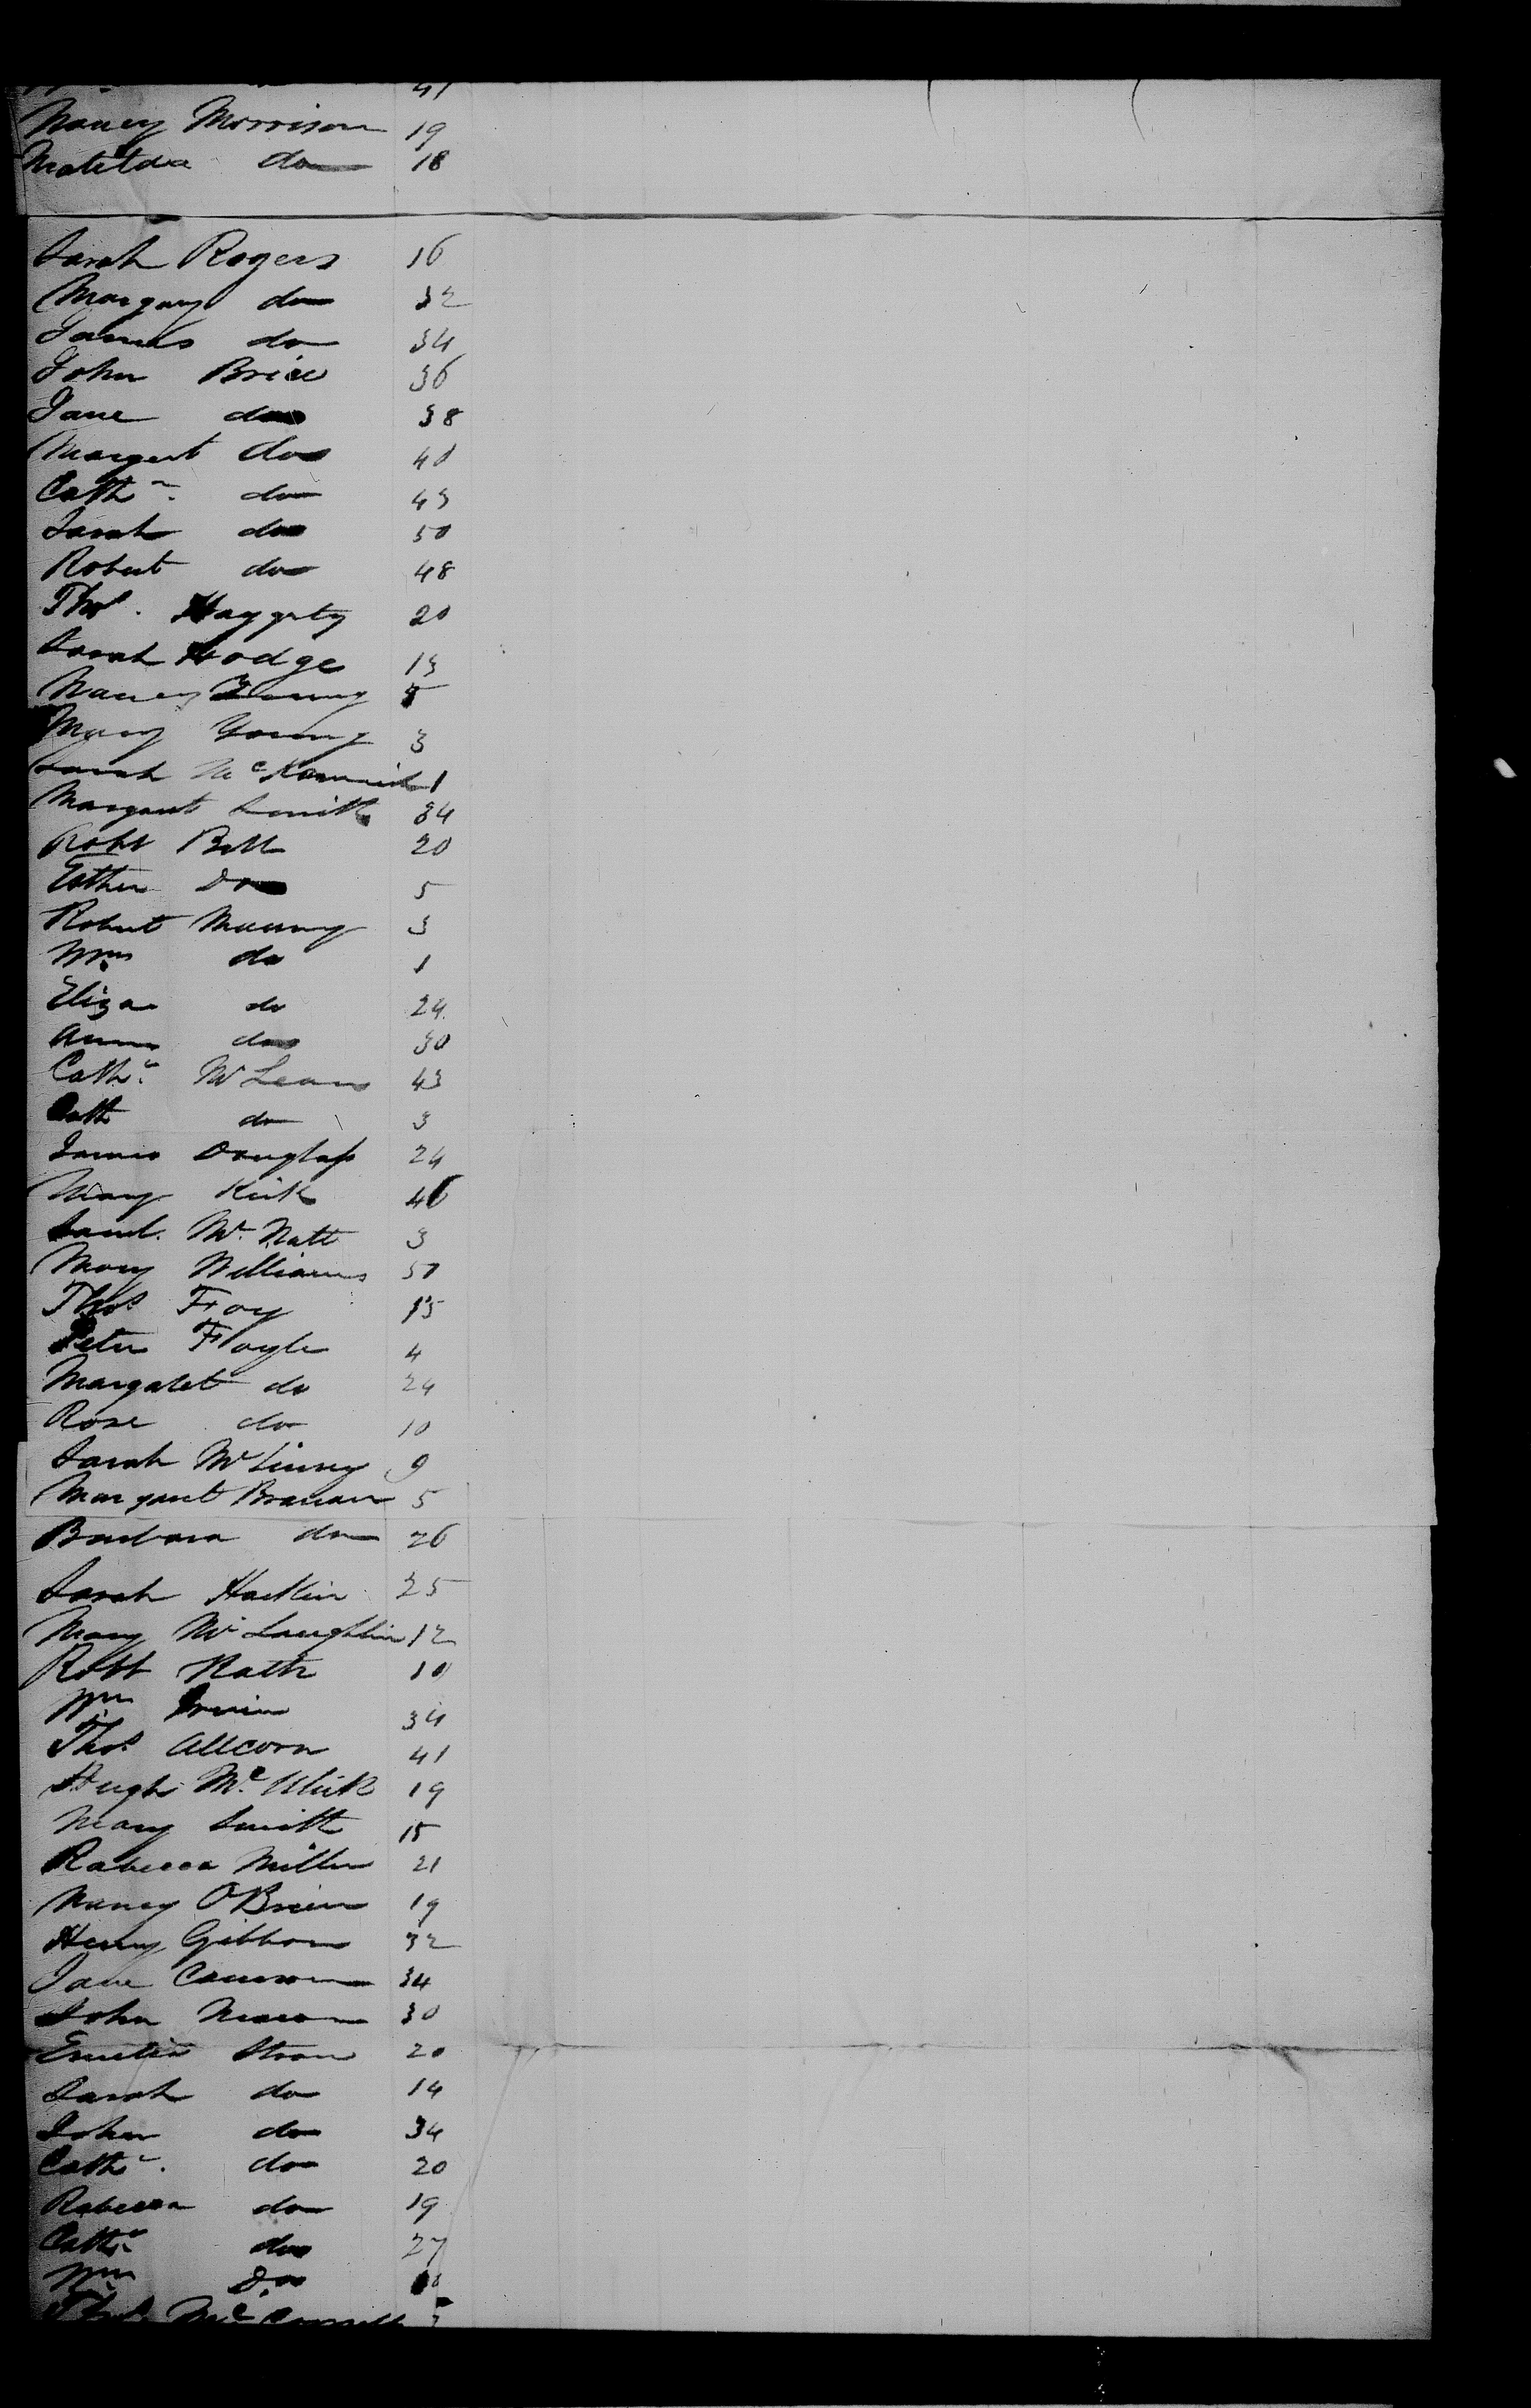 41
Nancy Morrison 19
Matilda do 18
Sarah Rogers 16
Margary do 32
James do 34
John Brice 36
Jane do 38
Margert do 40
Cathe. do 43
Sarah do 50
Robert do 48
Thos. Haggerty 20
Sarah Hodge 13
Nancy Young 5
Mary Young 3
Sarah 1
Margaret Smith 34
Robt Bell 20
Esther Do 5
Robert Murray 3
Wm do 1
Eliza do 24
Ann do 30
Cathe. McLean 43
Cath do 3
James Douglass 24
Mary Kirk 40
Saml. McNatt 3
Mary Williams 50
Thos Foy 15
Peter Foyle 4
Margaret do 24
Rose do 10
Sarah 9
Margaret Branan 5
Barbara do 26
Sarah Harkin 25
Mary McLaughlin 12
Robt Rath 10
Wm Irvin 34
Thos Allcorn 41
Hugh Mc 19
Mary Smith 15
Rabecca Miller 21
Nancy O'Brien 19
Henry Gibbons 32
Jane Cameron 34
John 30
20
Sarah do 14
John do 34
Cathe. do 20
Rabecca do 19
Cathe do 27
Wm Do
Thos. Mc